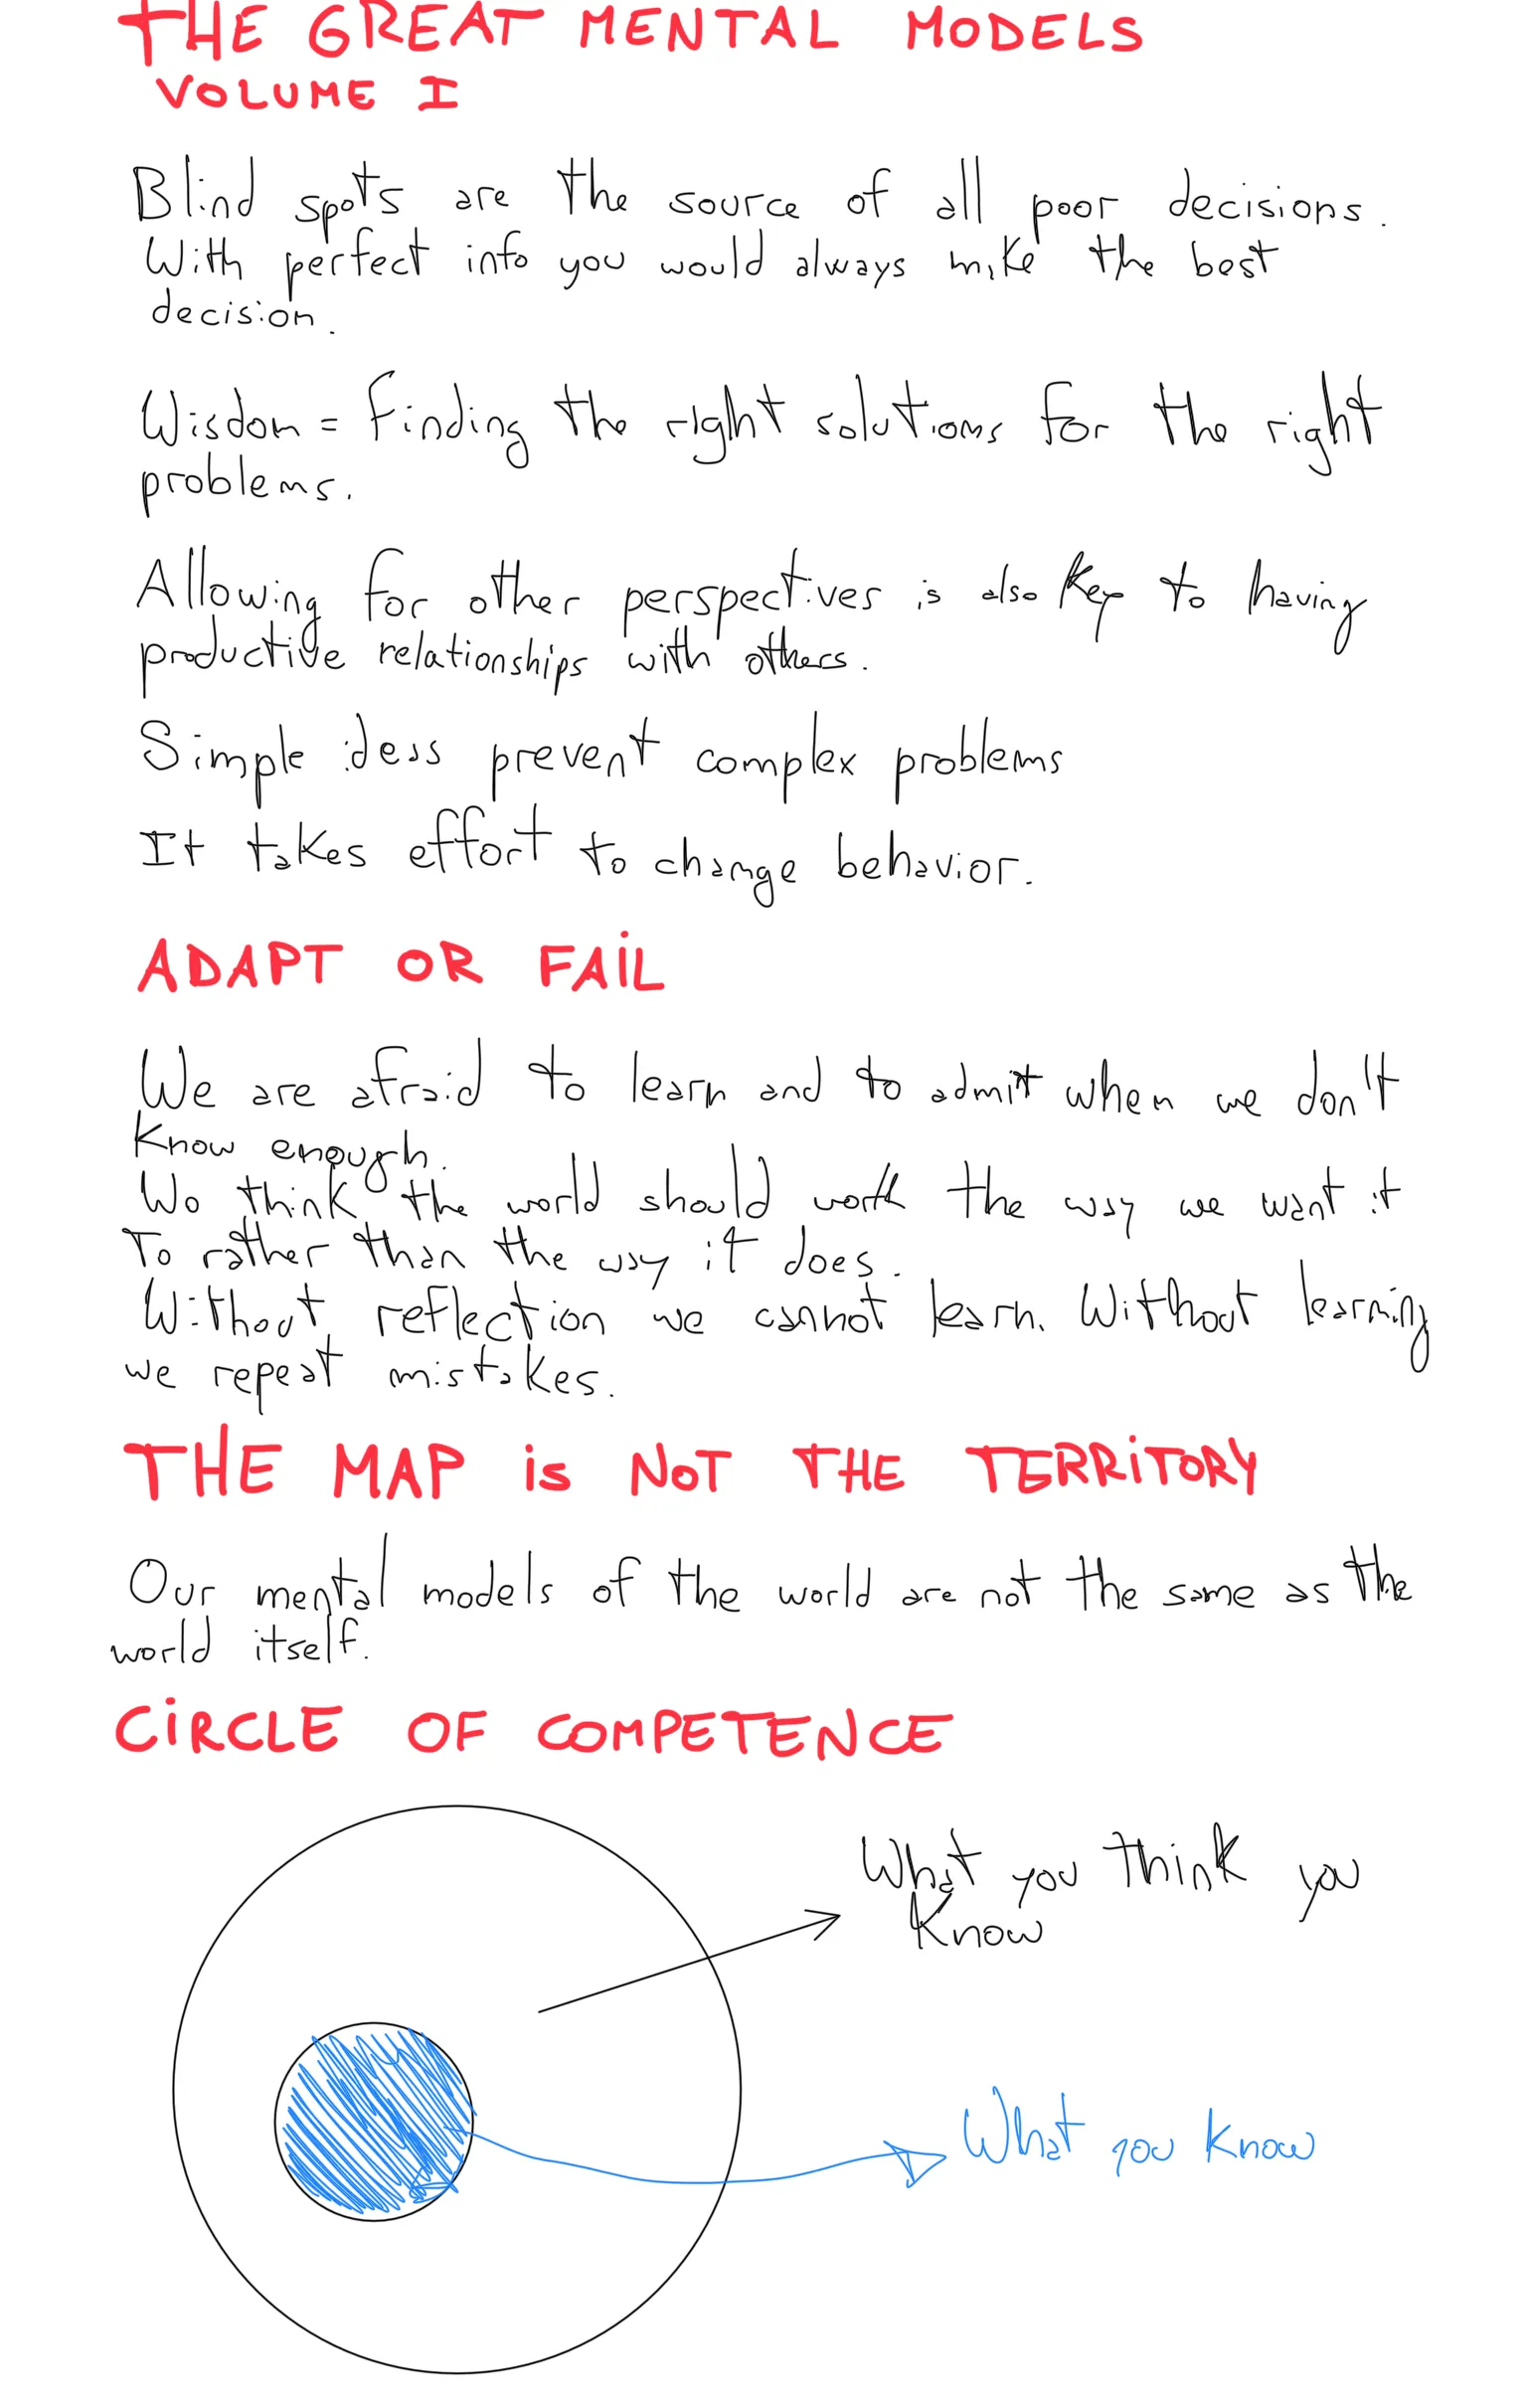 THE GREAT MENTAL MODELS
VOLUME I
Blind spots are the source of all poor decisions.
With perfect info you would always make the best
decision.
Wisdom = Finding the right solutions for the right
problems.
Allowing for other perspectives is also key to having
productive relationships with others.
Simple ideas prevent complex problems
It takes effort to change behavior.
ADAPT OR FAIL
We are afraid to learn and to admit when we don't
know enough.
We think the world should work the way we want it
To rather than the way it does.
Without reflection we cannot learn. Without learning
we repeat mistakes.
THE MAP is NOT THE TERRiTORY
Our mental models of the world are not the same as the
world itself.
CiRCLE OF COMPETENCE
What you think you
Know
What you know